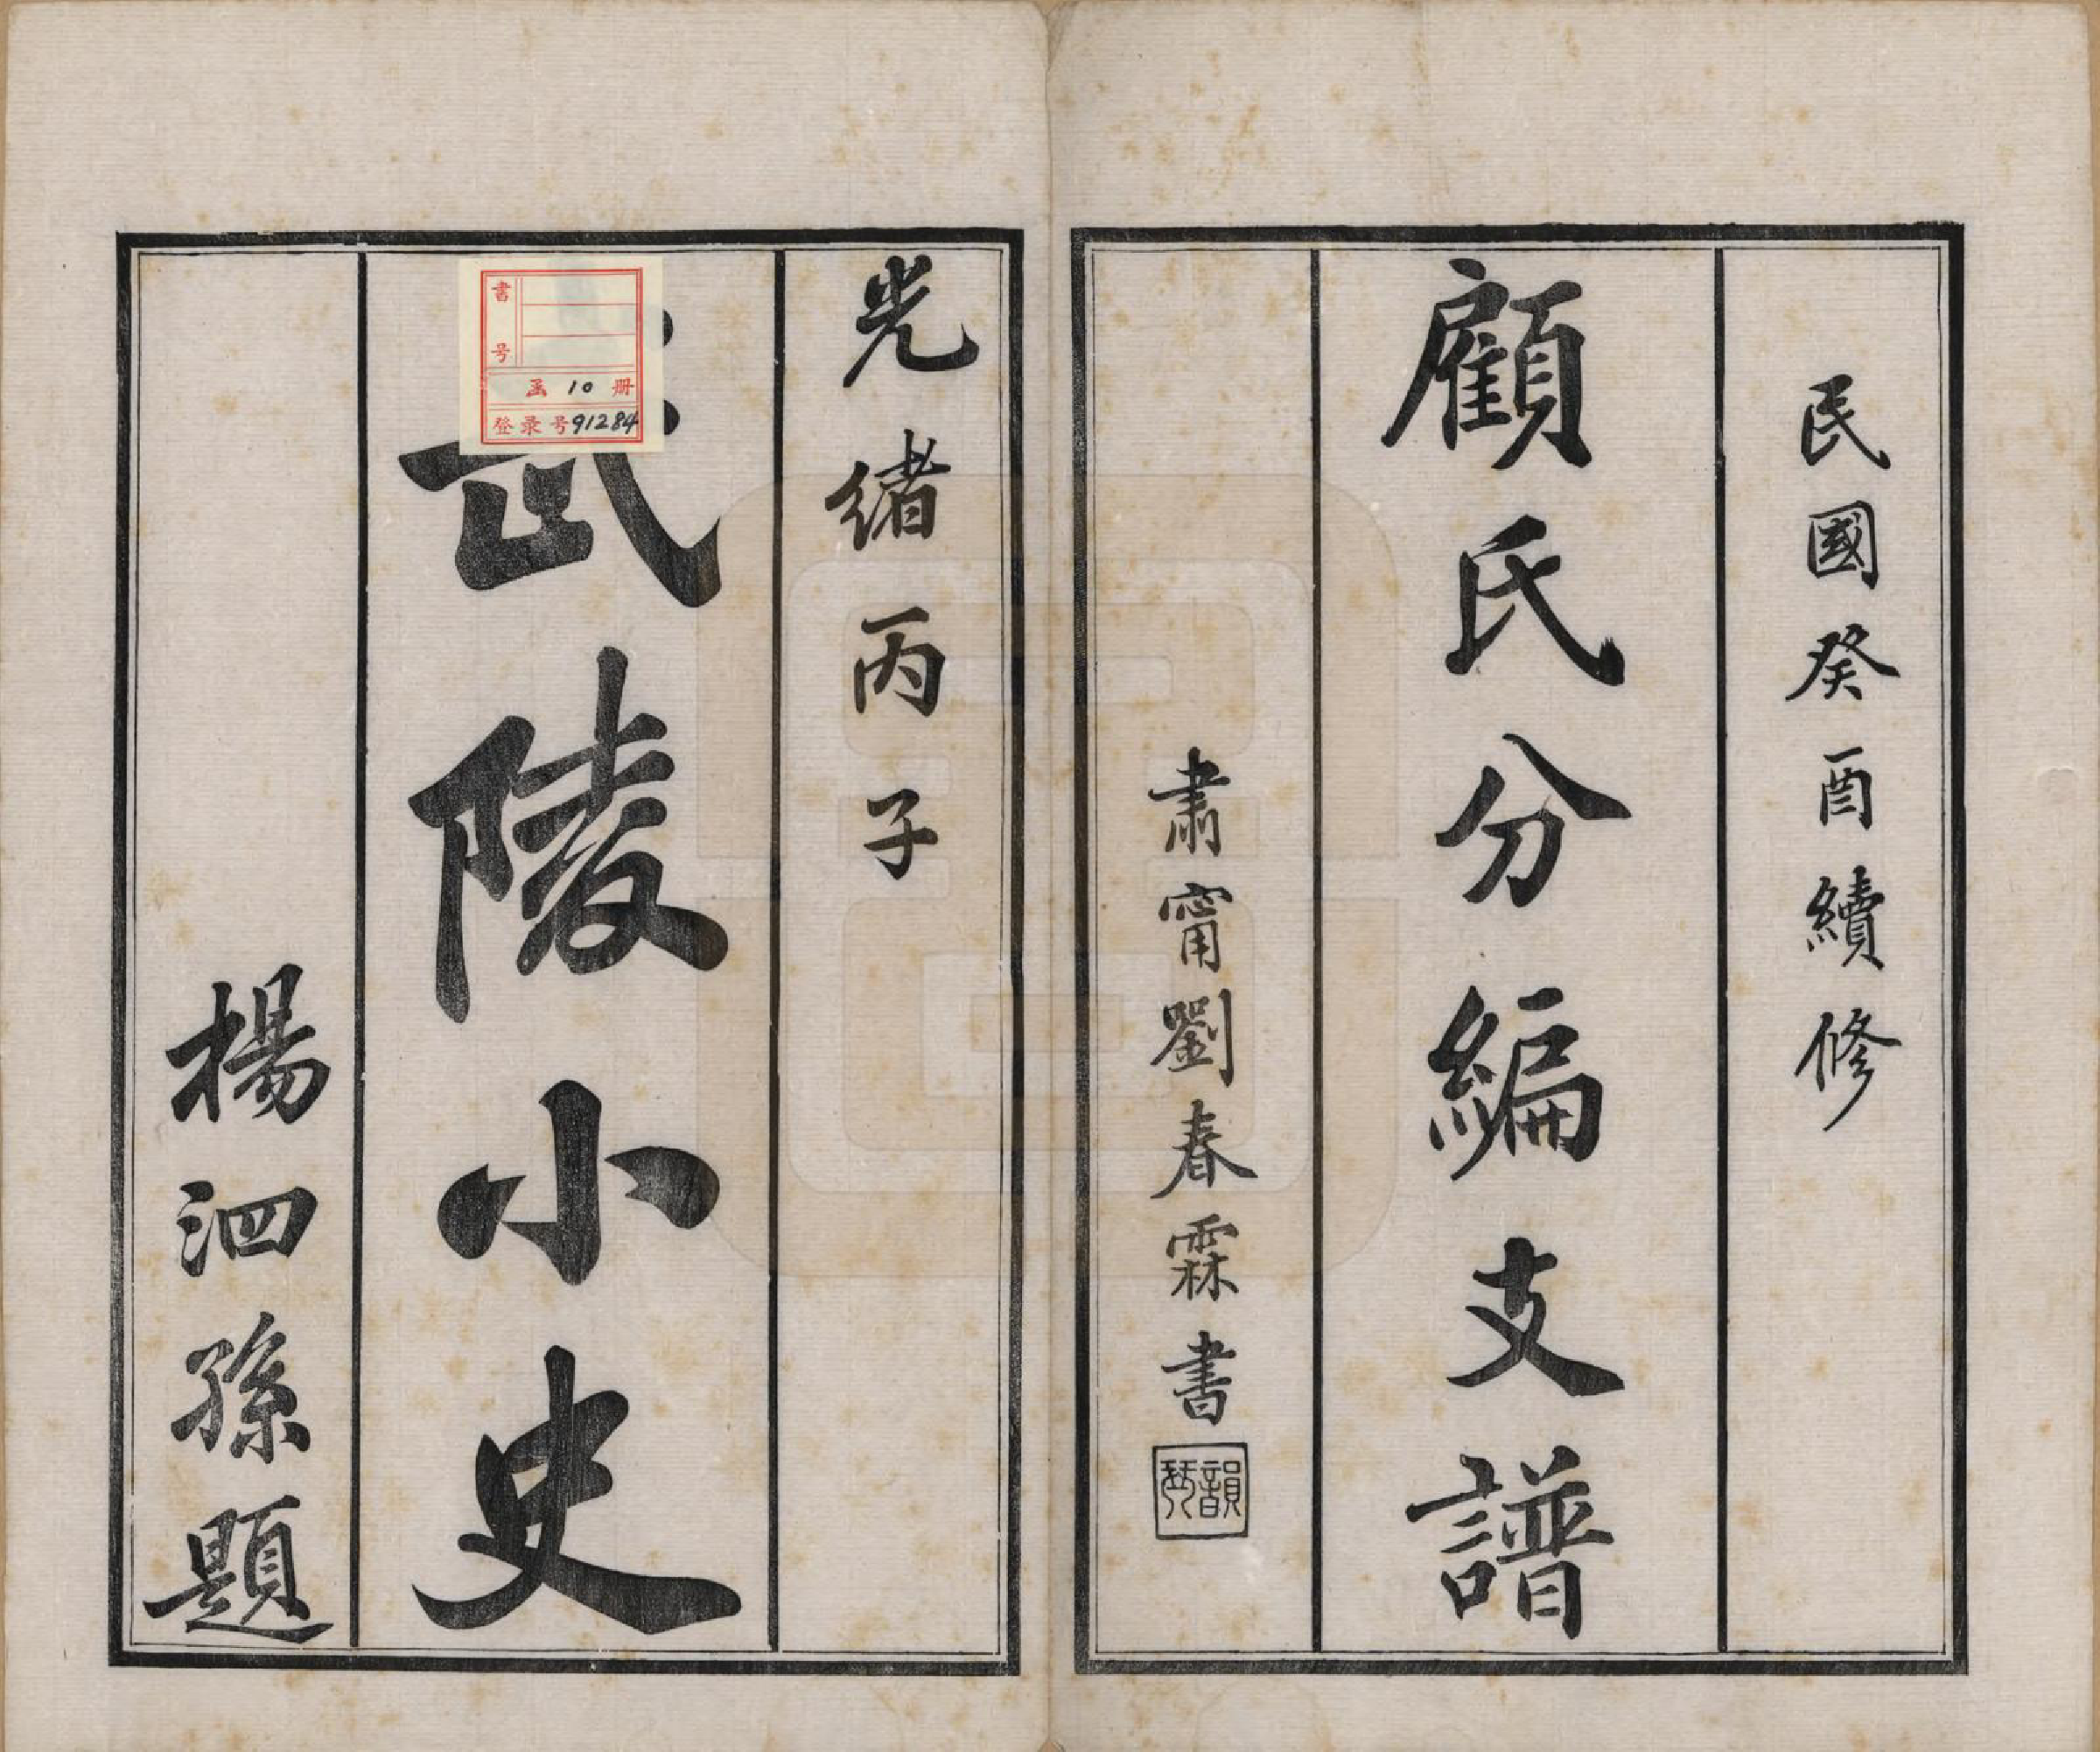 民國癸酉續修
顧氏分編支譜
肅甯劉春霖書
光緒丙子
武陵小史
楊泗孫題
書号
函 10 册
登录号91284